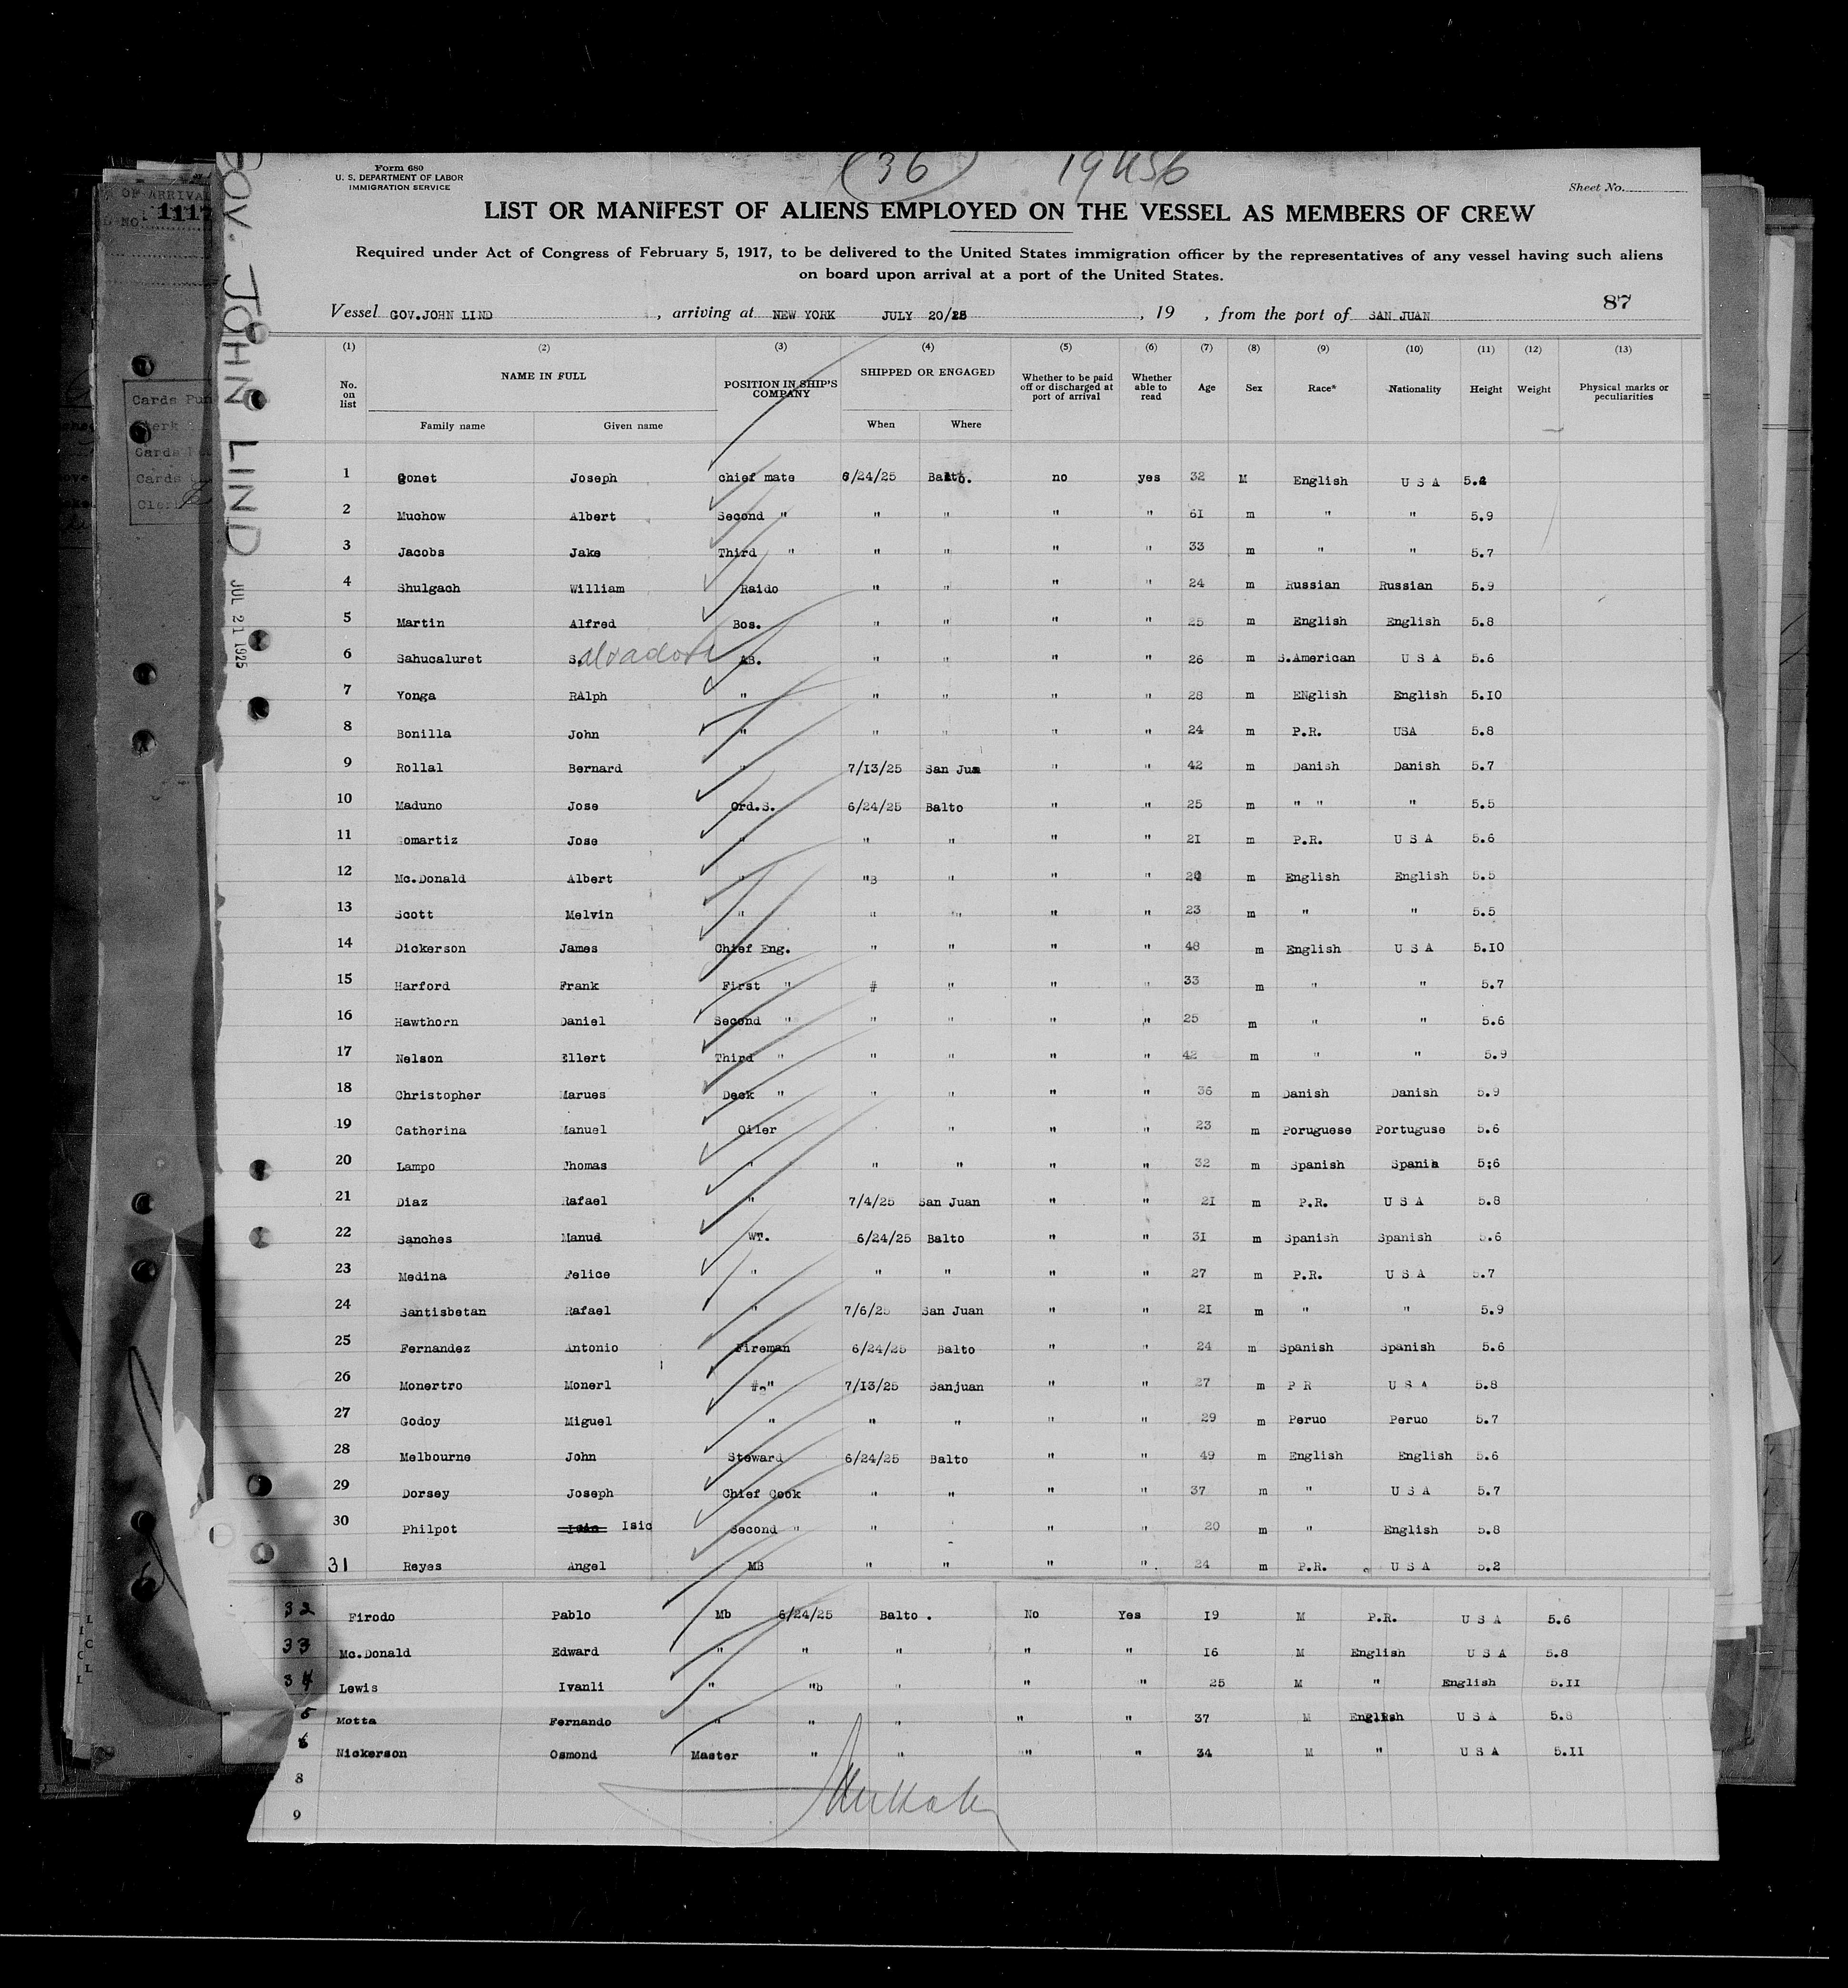 (36) 19456
Form 680
U. S. DEPARTMENT OF LABOR
IMMIGRATION SERVICE
Sheet No.
LIST OR MANIFEST OF ALIENS EMPLOYED ON THE VESSEL AS MEMBERS OF CREW
Required under Act of Congress of February 5, 1917, to be delivered to the United States immigration officer by the representatives of any vessel having such aliens
on board upon arrival at a port of the United States.
87
Vessel GOV.JOHN LIND , arriving at NEW YORK JULY 20/25 , 19 , from the port of SAN JUAN
GOV. JOHN LIND
JUL 21 1925
OF ARRIVAL
1117
Cards Pun
Clerk
Cards
Cards
Clerk
(1) (2) (3) (4) (5) (6) (7) (8) (9) (10) (11) (12) (13)
No. on list NAME IN FULL POSITION IN SHIP'S COMPANY SHIPPED OR ENGAGED Whether to be paid off or discharged at port of arrival Whether able to read Age Sex Race* Nationality Height Weight Physical marks or peculiarities
Family name Given name When Where
1 Gonet Joseph chief mate 6/24/25 Balto. no yes 32 M English U S A
2 Muchow Albert Second " " " " " 61 m " " 5.9
3 Jacobs Jake Third " " " " " 33 m " " 5.7
4 Shulgach William Raido " " " " 24 m Russian Russian 5.9
5 Martin Alfred Bos. " " " " 25 m English English 5.8
6 Sahucaluret S.alvadore AB. " " " " 26 m S.American U S A 5.6
7 Yonga RAlph " " " " " 28 m ENglish English 5.10
8 Bonilla John " " " " " 24 m P.R. USA 5.8
9 Rollal Bernard " 7/13/25 San Jua " " 42 m Danish Danish 5.7
10 Maduno Jose Ord.S. 6/24/25 Balto " " 25 m " " " 5.5
11 Gomartiz Jose " " " " " 21 m P.R. U S A 5.6
12 Mc.Donald Albert " "3 " " " m English English 5.5
13 Scott Melvin " " " " " 23 m " " 5.5
14 Dickerson James Chief Eng. " " " " 48 m English U S A 5.10
15 Harford Frank First " # " " " 33 m " " 5.7
16 Hawthorn Daniel Second " " " " " 25 m " " 5.6
17 Nelson Ellert Third " " " " " 42 m " " 5.9
18 Christopher Marues Deck " " " " " 36 m Danish Danish 5.9
19 Catherina Manuel Oiler " " " 23 m Poruguese Portuguse 5.6
20 Lampo Thomas " " " " " 32 m Spanish Spanis 5;6
21 Diaz Rafael " 7/4/25 San Juan " " 21 m P.R. U S A 5.8
22 Sanches Manud WT. 6/24/25 Balto " " 31 m Spanish Spanish 5.6
23 Medina Felice " " " " " 27 m P.R. U S A 5.7
24 Santisbetan Rafael " 7/6/25 San Juan " " 21 m " " 5.9
25 Fernandez Antonio Fireman 6/24/25 Balto " " 24 m Spanish Spanish 5.6
26 Monertro Monerl " 7/13/25 Sanjuan " " 27 m P R U S A 5.8
27 Godoy Miguel " " " " " 29 m Peruo Peruo 5.7
28 Melbourne John Steward 6/24/25 Balto " " 49 m English English 5.6
29 Dorsey Joseph Chief Cook " " " " 37 m " U S A 5.7
30 Philpot Isic Second " " " " 20 m " English 5.8
31 Reyes Angel MB " " " " 24 m P.R. U S A 5.2
32 Firodo Pablo Mb 6/24/25 Balto . No Yes 19 M P.R. U S A 5.6
33 Mc.Donald Edward " " " " " 16 M English U S A 5.8
34 Lewis Ivanli " "b " " " 25 M " English 5.11
5 Motta Fernando " " " " " 37 M English U S A 5.8
6 Nickerson Osmond Master " " " " 34 M " U S A 5.11
8
9